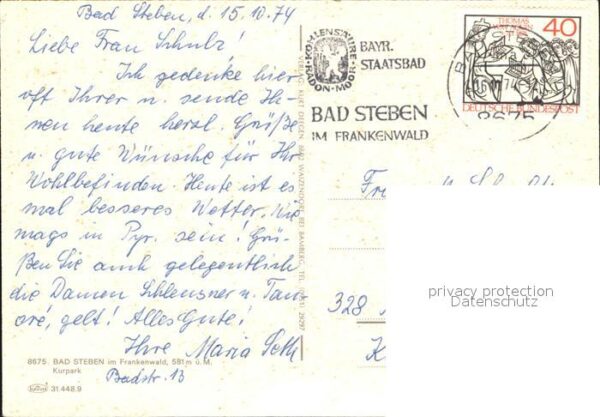 Bad Steben, d. 15.10.74
Liebe Frau Schulz!
Ich gedenke hier
oft Ihrer u. sende Ih-
nen heute herzl. Grüße
u. gute Wünsche für Ihr
Wohlbefinden. Heute ist es
mal besseres Wetter. Wie
mags in Pyr. sein! Grü-
ßen Sie auch gelegentlich
die Damen
gelt! Alles Gute!
Ihre Maria
Badstr. 13
8675. BAD STEBEN im Frankenwald, 581 m ü. M.
Kurpark
31.448.9
KOHLENSÄURE
RADON-MOOR
BAYR.
STAATSBAD
BAD STEBEN
IM FRANKENWALD
THOMAS
40
DEUTSCHE BUNDESPOST
8675
VERLAG KURT
BEI BAMBERG, TEL.
328
privacy protection
Datenschutz